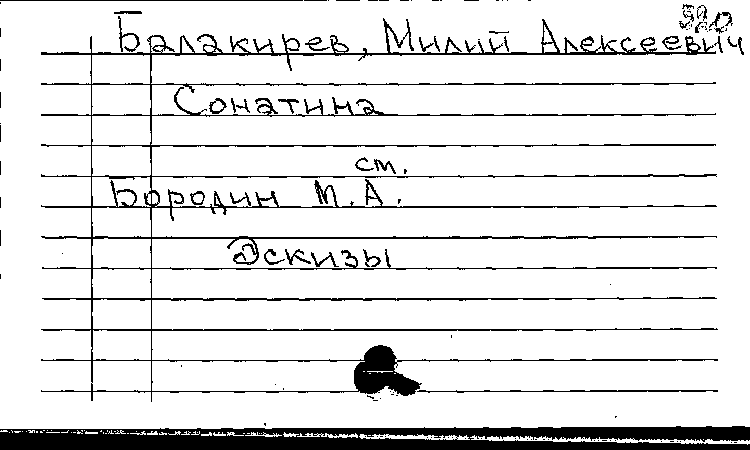 920
Балакирев, Милий Алексеевич
Сонатина
см.
Бородин М.А.
Эскизы